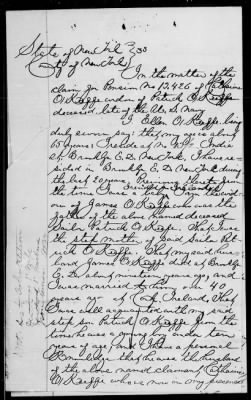 State of New York } SS
City of New York
In the matter of the
claim for Pension No 13,426 of Catharine
O'Keeffe widow of Patrick O'Keeffe
deceased, late of the U.S. Navy
I Ellen O'Keeffe, being
duly sworn say: that my age is about
65 years: I reside at No India
St Brooklyn E.D. New York, I have re-
sided in Brooklyn E.D. New York during
the last 20 years.
the time I was a
ow of James O'Keeffe who was the
father of the above named deceased
Sailor Patrick O'Keeffe. That I was
the step mother of said Sailor Pat-
rick O'Keeffe. That my said hus-
band James O'Keeffe died at Brooklyn
E.D. about nineteen years ago, and
I was married to him over 40
years ago at Cork Ireland, that
I was well acquainted with my said
step son Patrick O'Keeffe from the
time he was a young man under ten
years of age and I have a personal
knowledge that he was the husband
of the above named claimant Catharine
O'Keeffe who is now in my presence